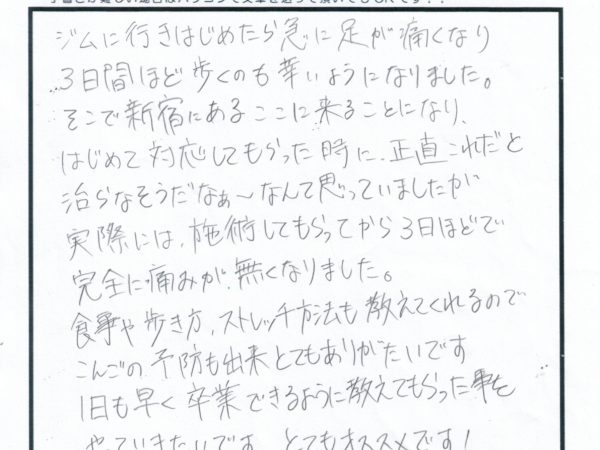 ジムに行きはじめたら急に足が痛くなり
3日間ほど歩くのも辛いようになりました。
そこで新宿にあるここに来ることになり、
はじめて対応してもらった時に、正直これだと
治らなそうだなぁ〜なんて思っていましたが
実際には、施術してもらってから3日ほどで
完全に痛みが無くなりました。
食事や歩き方、ストレッチ方法も教えてくれるので
こんごの予防も出来とてもありがたいです
1日も早く卒業できるように教えてもらった事を
やっていきたいです とてもオススメです!